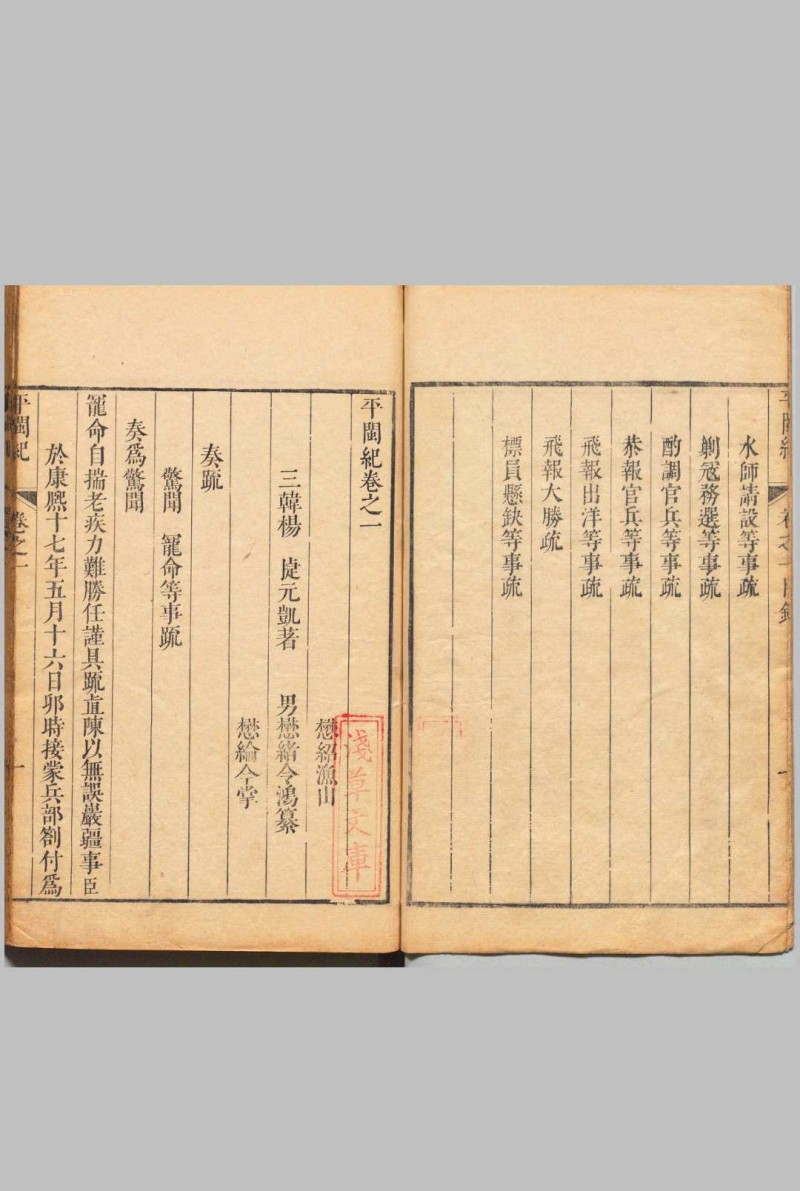 水師請設等事疏
剿寇務選等事疏
酌調官兵等事疏
恭報官兵等事疏
飛報出洋等事疏
飛報大勝疏
標員懸缺等事疏
平閩紀卷之一
懋紹漁山
三韓楊 捷元凱著 男懋緒令鴻纂
懋綸令掌
奏疏
驚聞 寵命等事疏
奏爲驚聞
寵命自揣老疾力難勝任謹具疏直陳以無誤巖疆事臣
於康熙十七年五月十六日卯時接蒙兵部劄付爲
平閩紀 卷之一 一
淺草文庫